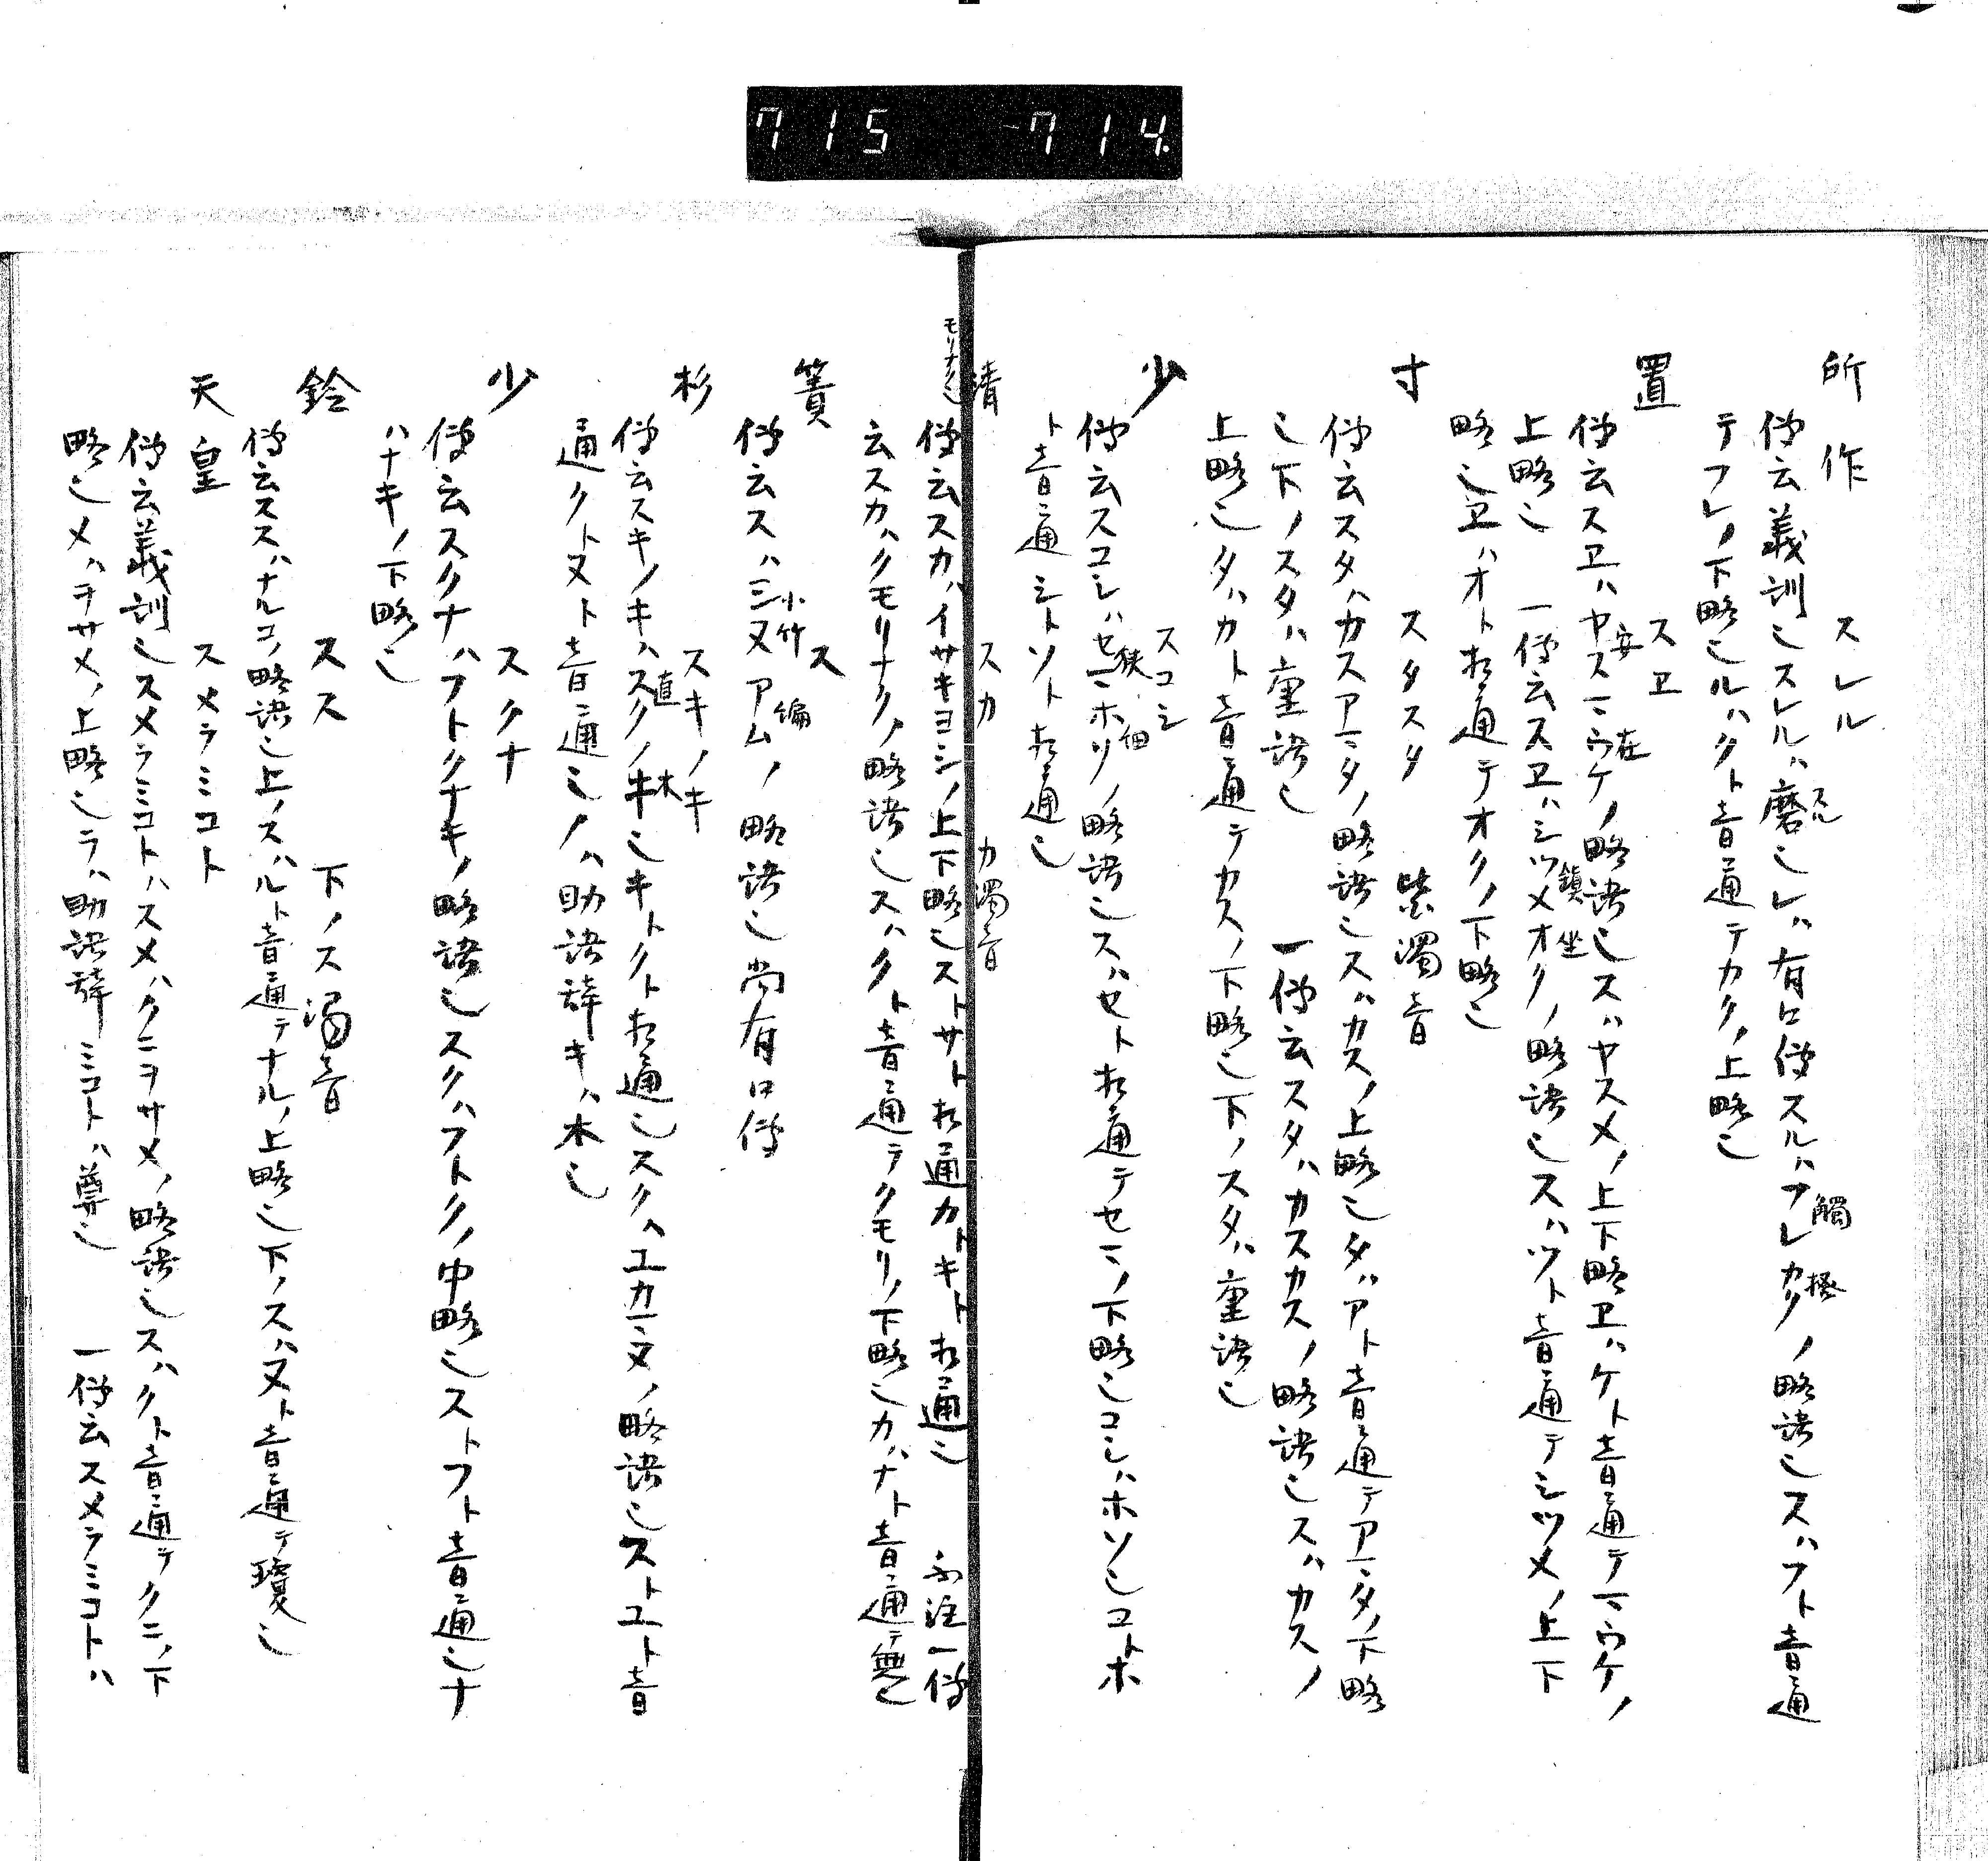 715 714
所作 スレル
傳云義訓也スレル、磨也レハ有口傳スルハフレカクノ略語也スハフト音通
スル
觸 掻
テフレノ下略也ルハクト音通テカクノ上略也
置 スヱ
傳云スヱハヤスマウケノ略語也スハヤスメノ上下略ヱハケト音通テマウケノ
安 在
上略也 一傳云スヱハシツメオクノ略語也スハツト音通テシツメノ上下
鎮 坐
略也ヱハオト相通テオクノ下略也
寸 スタスタ 濁音
傳云スタハカスアマタノ略語也スハカスノ上略也タハアト音通テアマタノ下略
也下ノスタハ重語也 一傳云スタハカスカスノ略語也スハカスノ
上略也タハカト音通テカスノ下略也下ノスタハ重語也
少 スコシ
傳云スコシハセマホソノ略語也スハセト相通テセマノ下略也コシハホソ也コトホ
狭 細
ト音通シトソト相通也
清 スカ カ濁音
傳云スカハイサキヨシノ上下略也ストサト相通カトキト相通也 一傳
モリナク也
云スカハクモリナクノ略語也スハクト音通テクモリノ下略也カハナト音通テ無也
簀 ス
傳云スハシヌアムノ略語也尚有口傳
小竹 編
杉 スキノキ
傳云スキノキハスクノキ也キトクト相通也スクハユカマヌノ略語也ストユト音
直 木
通クトヌト音通也ノハ助語辞キハ木也
少 スクナ
傳云スクナハフトクナキノ略語也スクハフトクノ中略也ストフト音通也ナ
ハナキノ下略也
鈴 スス 下ノス濁音
傳云ススハナルコノ略語也上ノスハルト音通テナルノ上略也下ノスハヌト音通テ瓊也
天皇 スメラミコト
傳云義訓也スメラミコトハスメハクニヲサメノ略語也スハクト音通テクニノ下
略也メハヲサメノ上略也ラハ助語辞ミコトハ尊也 一傳云スメラミコトハ